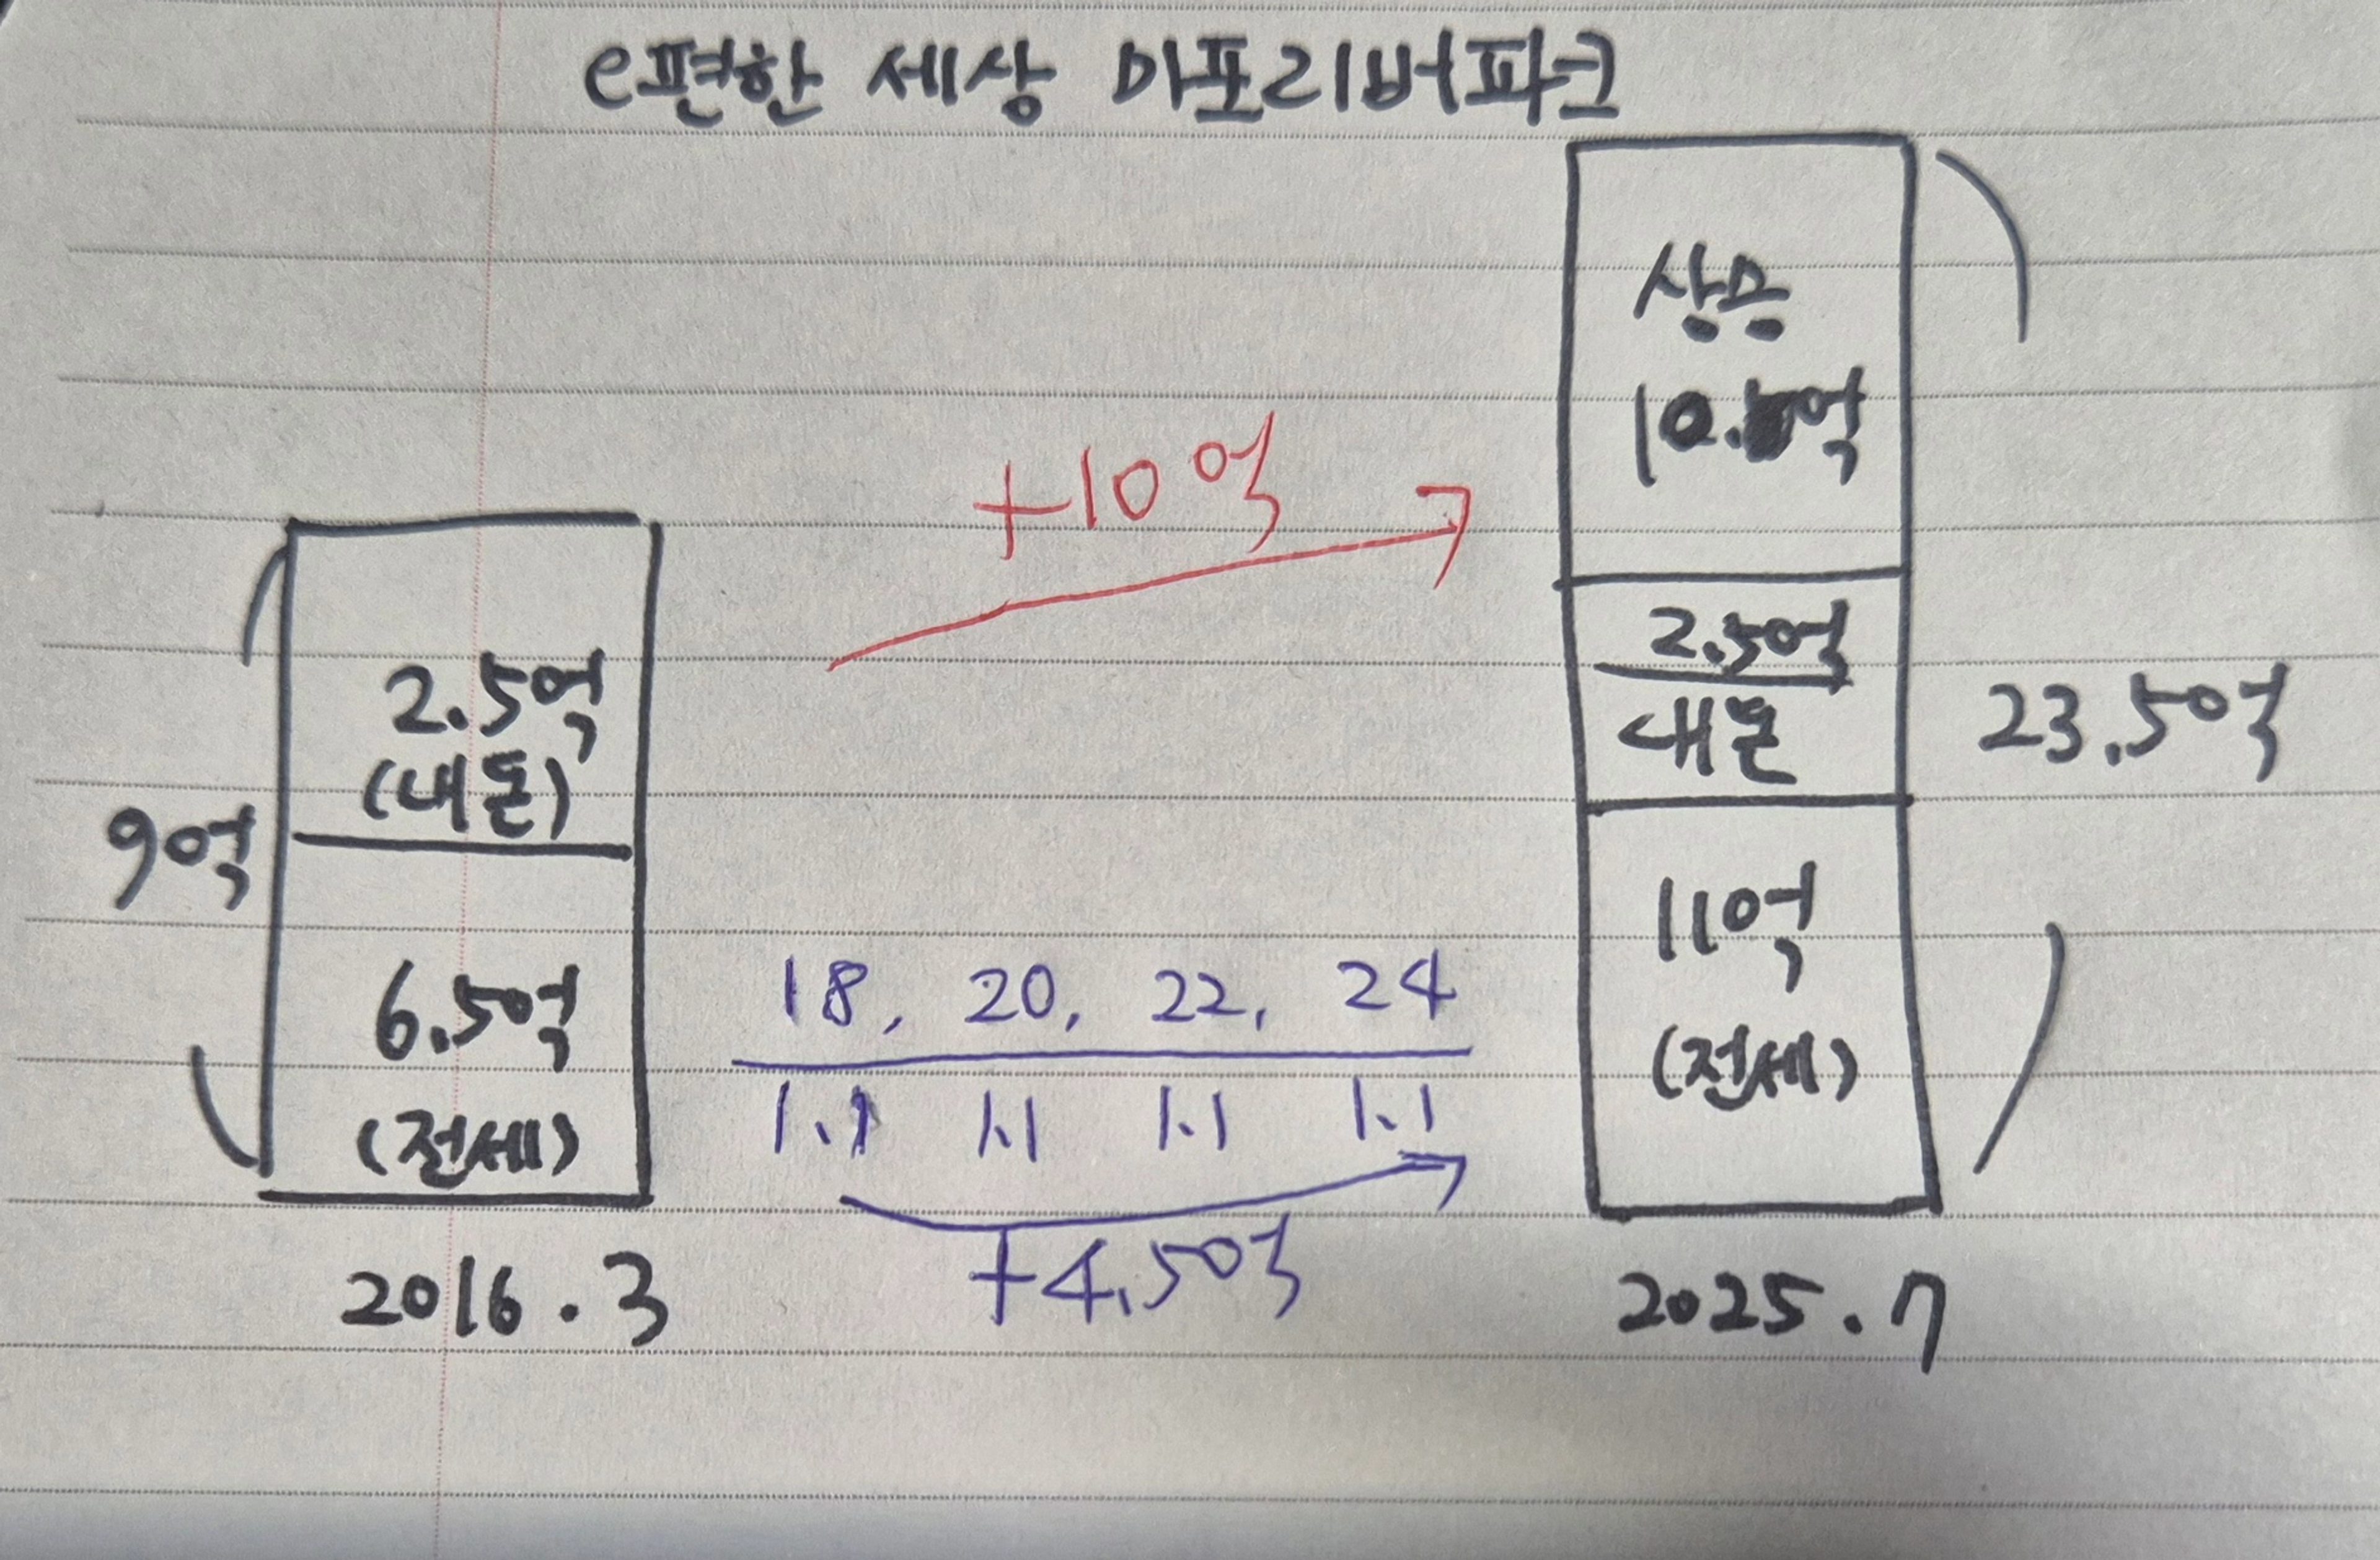 e편한 세상 마포리버파크
상승
10.억
+10억
2.5억
(내돈)
2.5억
내돈
9억
23.5억
6.5억
(전세)
11억
(전세)
18, 20, 22, 24
1.1 1.1 1.1 1.1
+4.5억
2016.3
2025.7